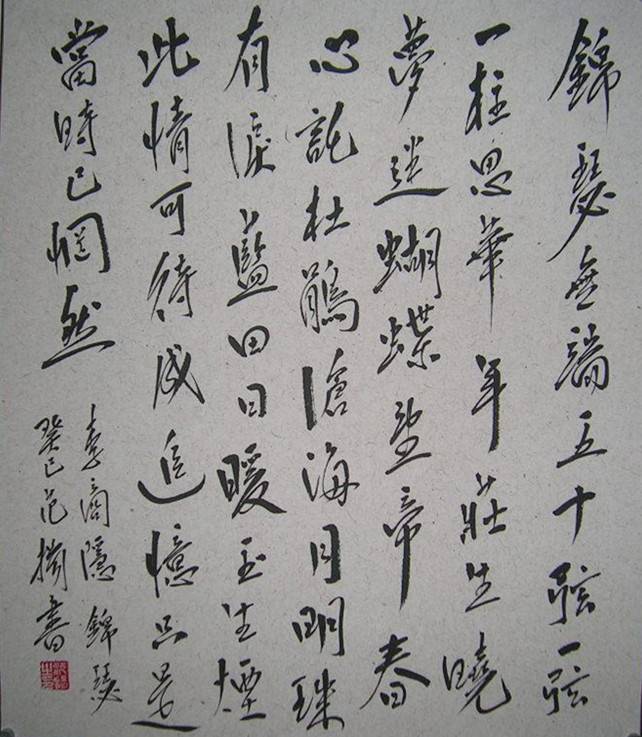 錦瑟無端五十弦一弦
一柱思華年莊生曉
夢迷蝴蝶望帝春
心託杜鵑滄海月明珠
有淚藍田日暖玉生煙
此情可待成追憶只是
當時已惘然
李商隱錦瑟
癸巳范書